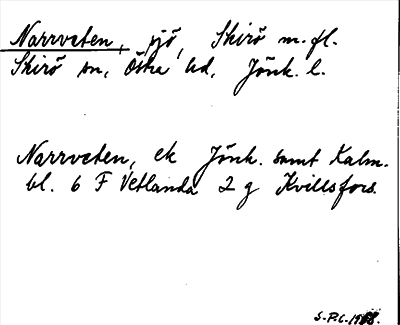 Narrveten, sjö, Skirö m.fl.
Skirö sn, Östra hd, Jönk. l.
Narrveten, ek Jönk. samt Kalm.
bl. 6 F Vetlanda 2 g Kvillsfors.
S-P.C.-1988.